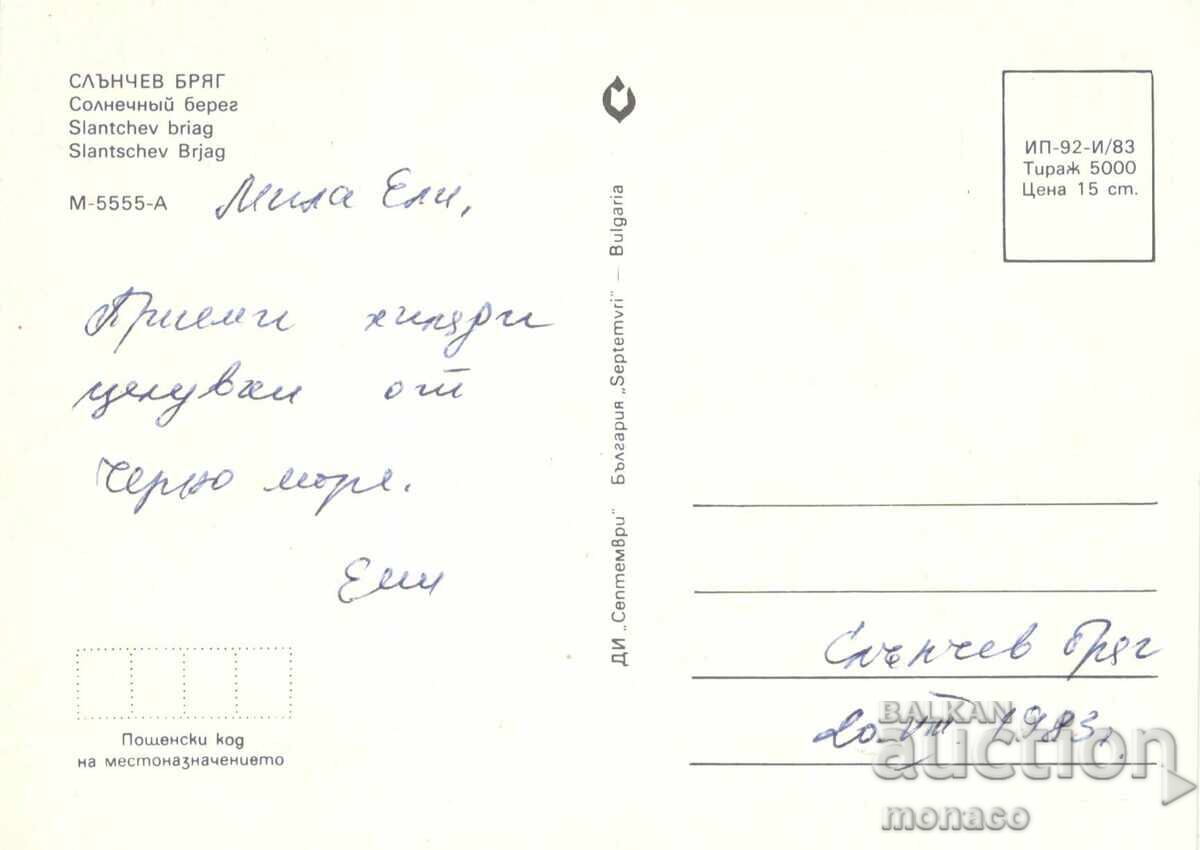 СЛЪНЧЕВ БРЯГ
Солнечный берег
Slantchev briag
Slantschev Brjag
М-5555-А
Мила Ели,
Приеми хиляди
целувки от
Черно море.
Ели
Пощенски код
на местоназначението
ДИ „Септември" България „Septemvri" — Bulgaria
ИП-92-И/83
Тираж 5000
Цена 15 ст.
Слънчев бряг
20.VIII.1983г.
BALKAN
auction
monaco